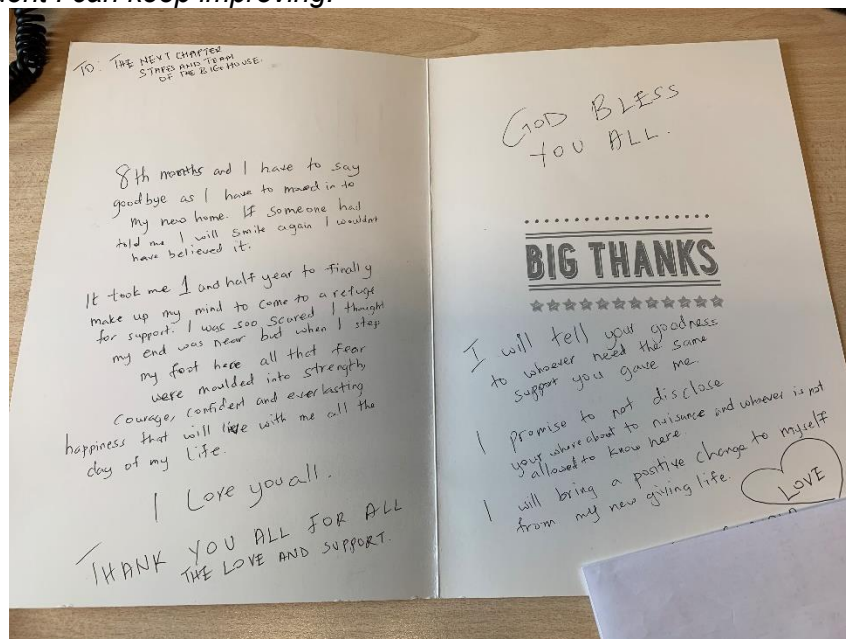 ent I can keep improving.
TO: THE NEXT CHAPTER
STAFFS AND TEAM
OF THE BIG HOUSE.
8th months and I have to say
goodbye as I have to moved in to
my new home. If someone had
told me I will smile again I wouldnt
have believed it.
It took me 1 and half year to finally
make up my mind to come to a refuge
for support. I was soo scared I thought
my end was near but when I step
my foot here all that fear
were moulded into strength,
Courage, confident and everlasting
happiness that will live with me all the
day of my life.
I Love you all.
THANK YOU ALL FOR ALL
THE LOVE AND SUPPORT.
GOD BLESS
YOU ALL.
BIG THANKS
I will tell your goodness
to whoever need the same
support you gave me.
I promise to not disclose
your where about to nuisance and whoever is not
allowed to know here.
I will bring a positive change to myself
from my new giving life.
LOVE